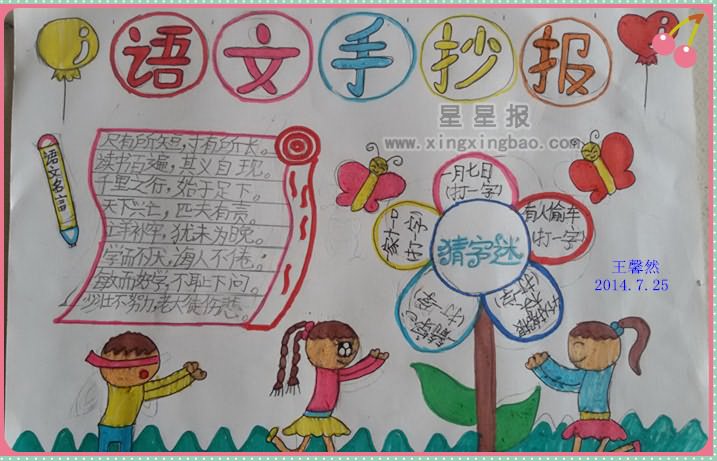 语文手抄报
星星报
www.xingxingbao.com
语文名言
尺有所短,寸有所长。
读书百遍,其义自现。
千里之行,始于足下。
天下兴亡,匹夫有责。
亡羊补牢,犹未为晚。
学而不厌,诲人不倦。
敏而好学,不耻下问。
少壮不努力,老大徒伤悲。
一月七日
(打一字)
有人偷车
(打一字)
家十口
(打一字)
猜字谜
(打一字)
(打一字)
王馨然
2014.7.25